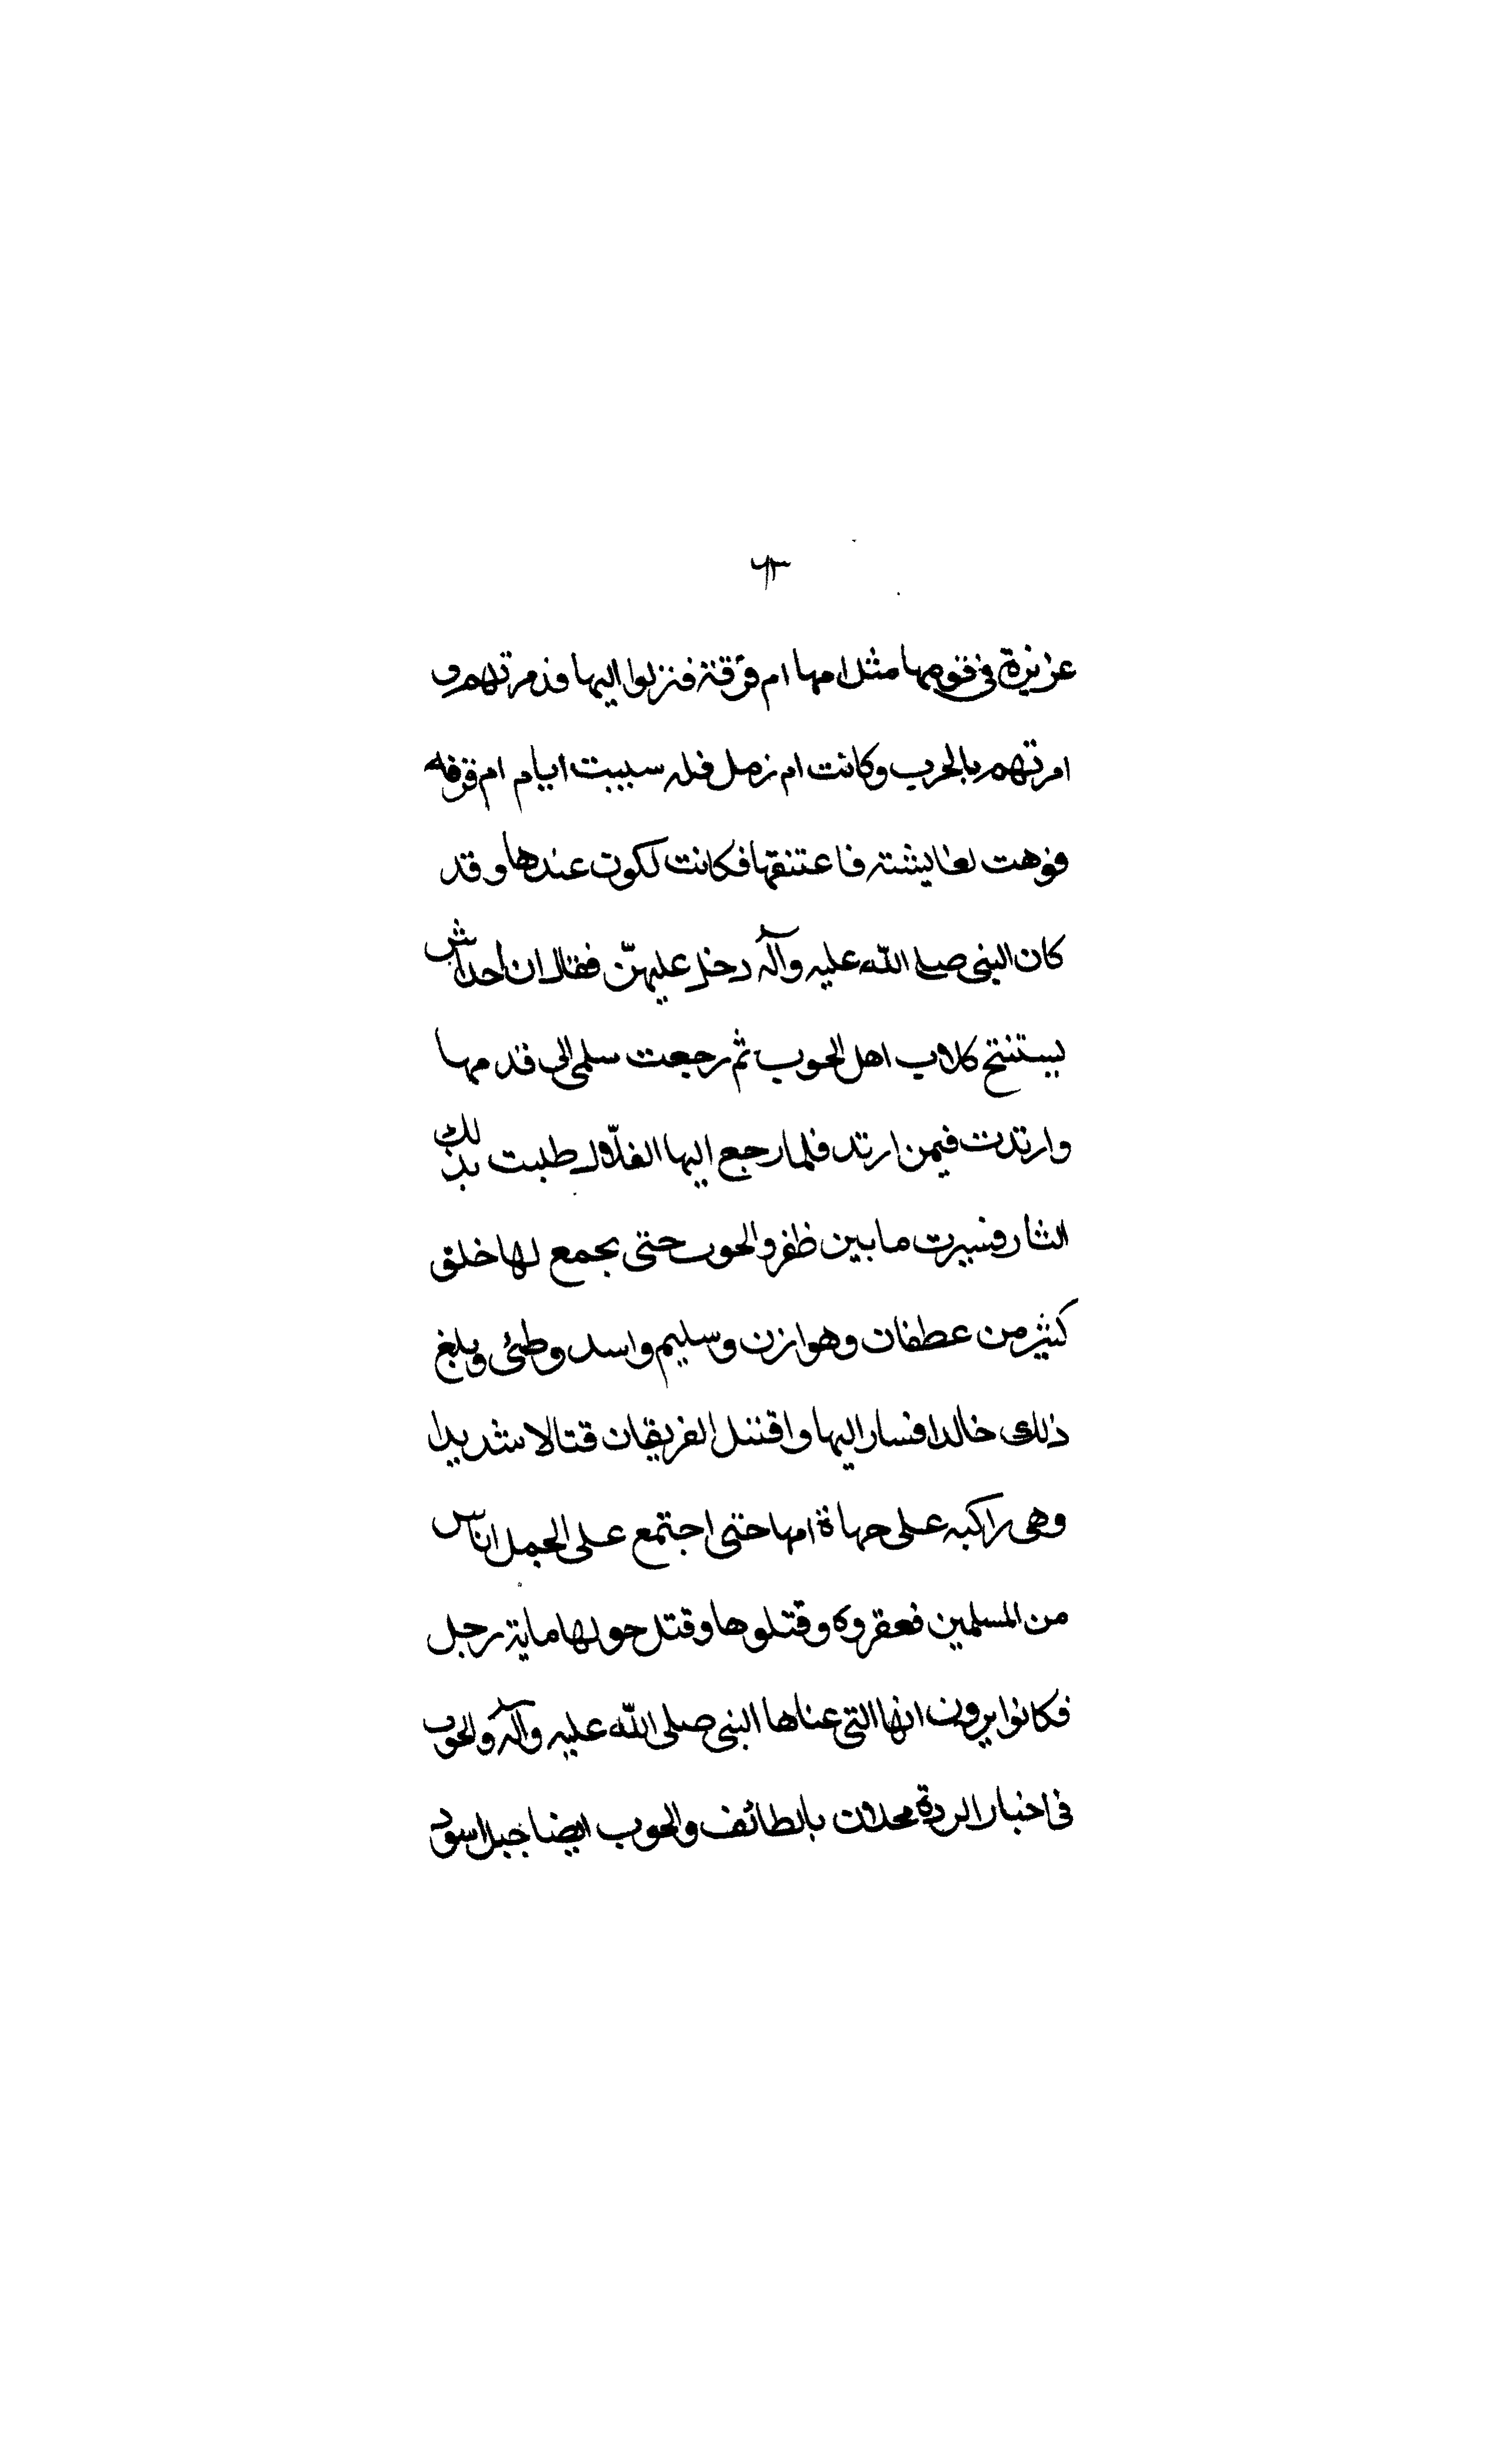 عزيزة فى قومها مثل امها ام قرقة فنزلوا اليها فذمرتهم و
امرتهم بالحرب وكانت ام زمل قله سبيت ايام ام قرفه
فوهت لعايشة فاعتنقها فكانت لكون عندها وقد
كان النبى صلى الله عليه وآله دخل عليهنّ فقال ان احداش
يستنتح كلاب اهل الحوب ثم رجعت سلمى الى قدمها
وارتدت فيمن ارتد فلما رجع اليها الفلّال طبت بذلك
الثار فسيرت مابين ظفر والحوب حتى تجمع لها خلق
كثير من عطفان وهوازن وسليم واسد وطئ وبلغ
ذلك خالدا فسار اليها واقتتل الفريقان قتالا شديدا
وهى راكبه على حهاة امها حتى اجتمع على الجمل اناس
من المسلمين فعقروه وقتلوها وقتل حولها ماية رجل
فكانوا يرون انها التى عناها النبى صلى الله عليه وآله والحوب
فى اخبار الردة محلان بالطائف والحوب ايضا جبل اسود